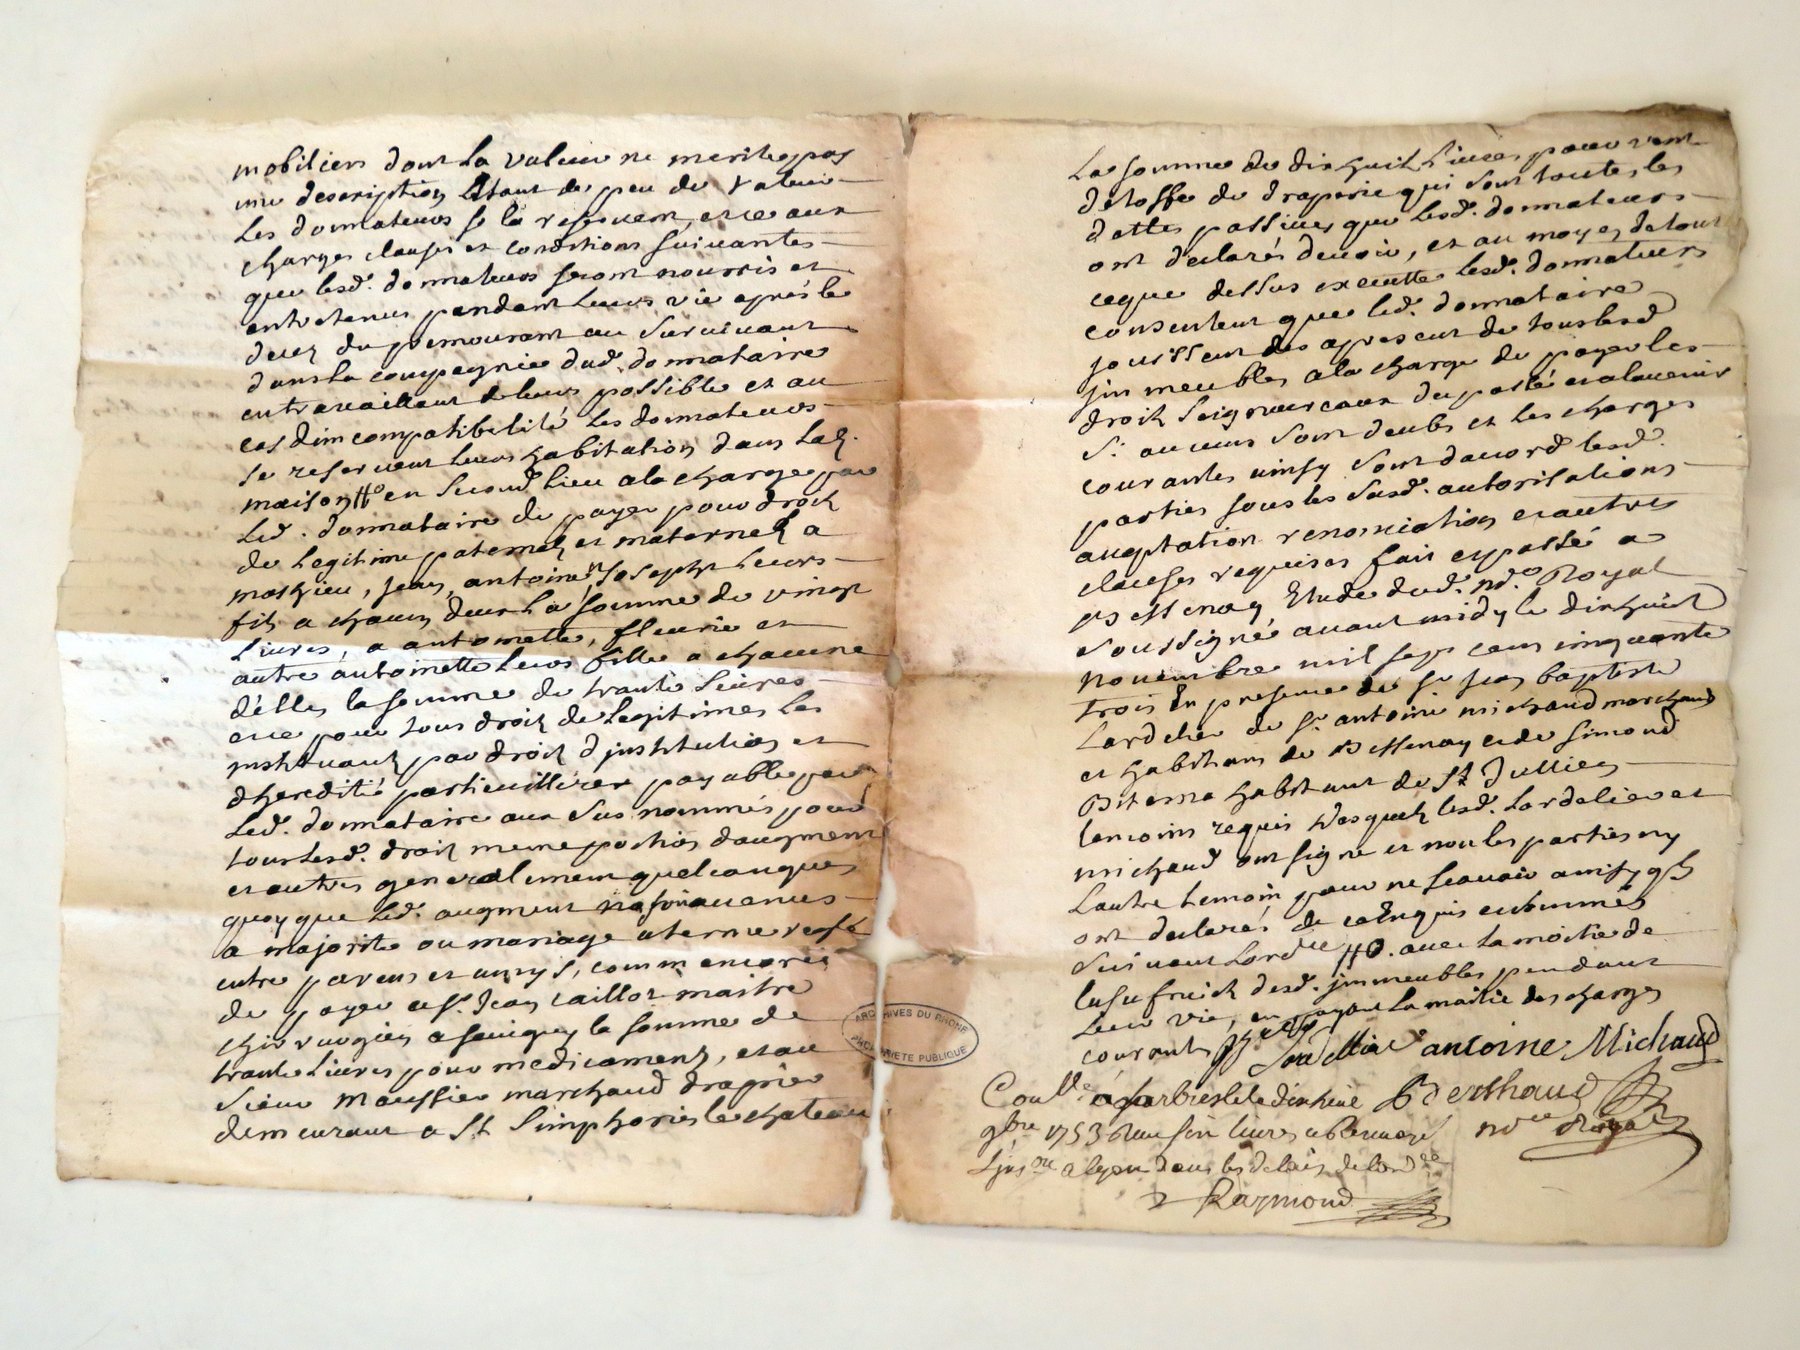 mobiliers dont la valeur ne merite pas
une description Estant de peu de valeur
Les donnateurs se la reservent, et ce aux
charges clauses et conditions suivantes
que lesd. donnateurs seront nourris et
entretenus pendant leurs vie après le
decez du premourant au survivant
dans la compagnie dud. donnataire
en travaillant de leurs possible et au
cas dincompatibilité Les donnateurs
se reservent leurs habitation dans lad.
maison en second lieu a la charge par
Led. donnataire de payer pour droit
de legitime paternelz et maternelz a
mathieu, jean, antoine, joseph leurs
fils a chacun deux la somme de vingt
livres, a antoinette, fleurie et
autre antoinette leurs fille a chacune
d'elles la somme de trante livres
et ce pour tous droitz de legitimes les
instituant par droit d'institution et
dheredité particuilliere payable par
Led. donnataire aux sus nommés pour
tous lesd. droitz meme portion daugment
et autres generalement quelconques
quoy que led. augment
a majorité ou mariage a terme
entre parens et amys, comm encorre
de payer a sr. Jean caillot maitre
chirurgien a savigny la somme de
trante livres pour medicamentz, et au
sieur moussier marchand drapier
demeurant a St Simphorien le chateau
La somme de dixhuit livres pour vent
detoffe de draperie qui sont toutes les
dettes passives que lesd. donnateurs
ont declarés devoir, et au moyen de tout
ceque dessus execulte lesd. donnateurs
consentent que led. donnataire
jouissent des apresent de tous lesd
jmmeubles a la charge de payer les
droit seigneuriaux du passé et alavenir
si aucuns sont deubs et les charges
courantes ainsy sont dacord lesd.
parties sous les susd. autorisations
aceptation renonciation et autres
clauses requises fait et passé a
Bessenay Etude dud. nore Royal
soussigné avant midy le dixhuit
novembre mil sept cent cinquante
trois En presence de sr jean baptiste
Lardelier de sr antoine michaud marchand
et habitans de Bessenay et de Simond
Biterna habitant de St Jullien
temoins requis desquelz lesd. Lardelier et
michaud ont signe et non les parties ny
Lautre temoin pour ne scavoir ainsy qlz
ont declarés de ce Enquis et sommés
suivant Lordce avec la moitié de
lusufruit desd. jmmeubles pendant
Leur vie, en payant la moitié des charges
courantes
antoine Michaud
Conllé a Larbresle le dixhuit Berthaud
9bre 1753 livres nore Royal
a lyon dans les delais de lordce
Raymond
ARCHIVES DU RHONE
PROPRIETE PUBLIQUE